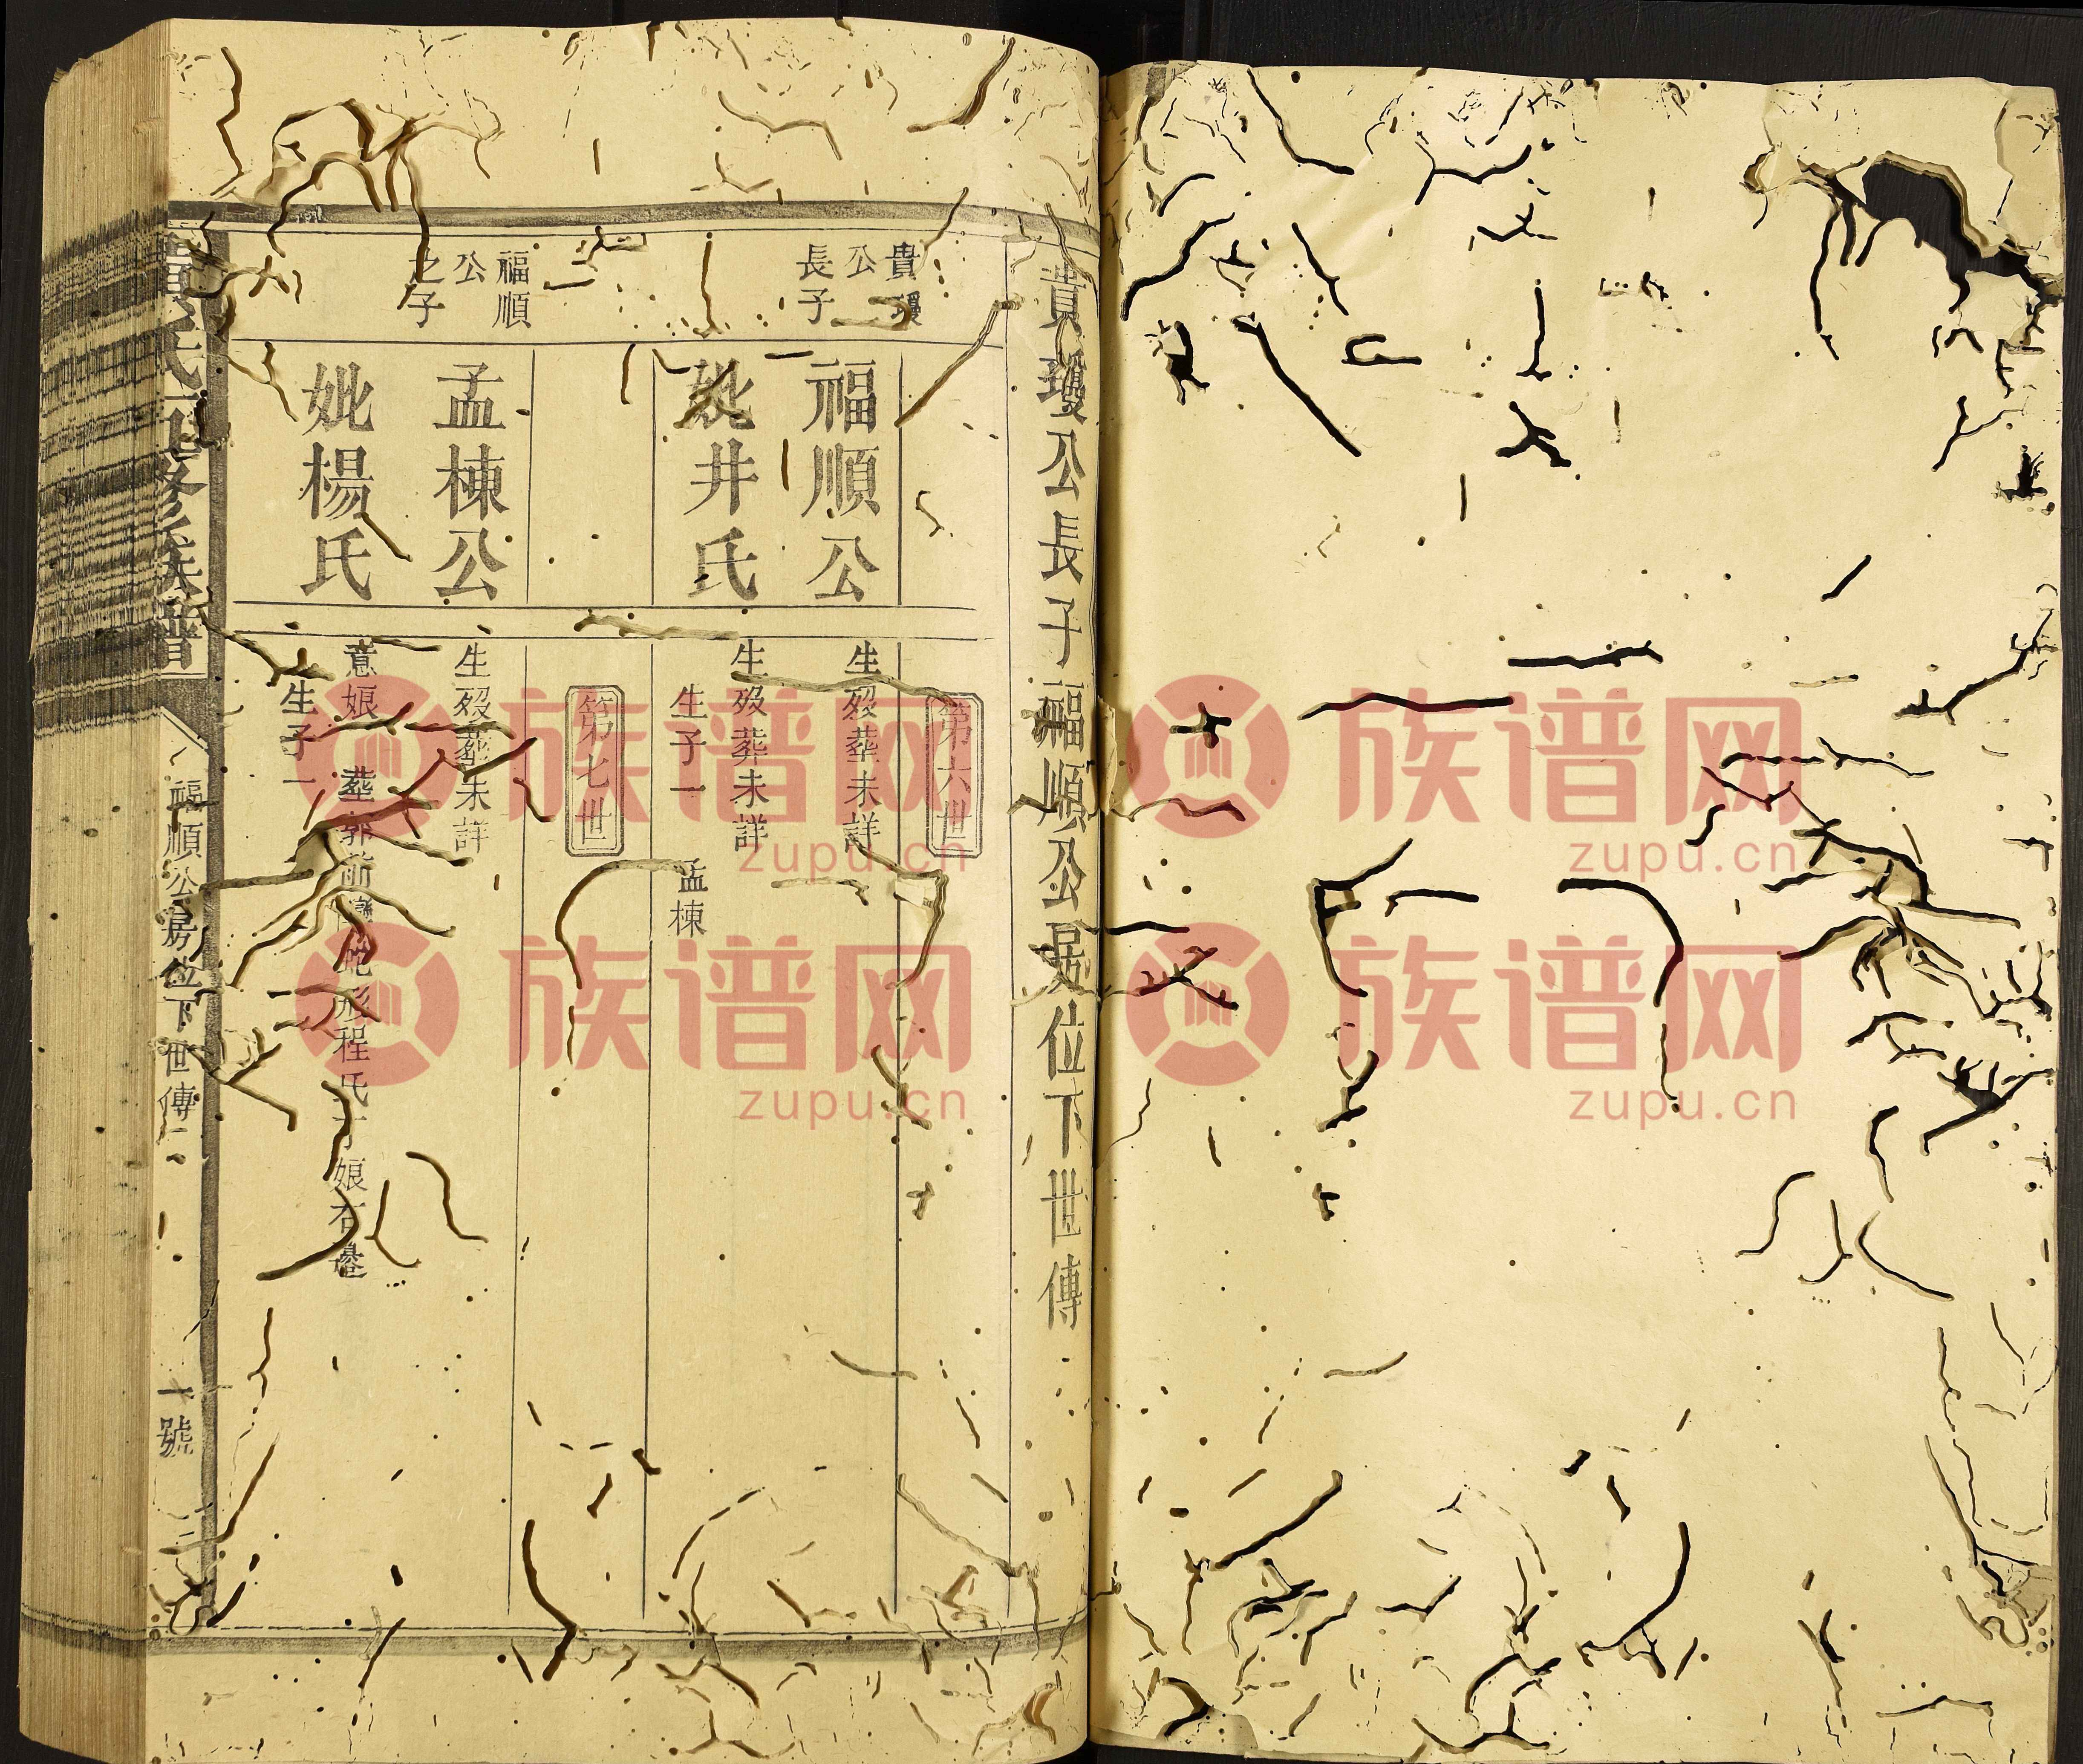 貴瓊公長子福順公房位下世傳
第六世
貴瓊
公
長子
福順公
生歿葬未詳
妣井氏
生歿葬未詳
生子一 孟棟
第七世
福順
公
之子
孟棟公
生歿葬未詳
妣楊氏
意娘 葬 蛇形程氏 娘右邊
生子一
氏 修族譜
福順公房位下世傳
一號
族谱网
zupu.cn
族谱网
zupu.cn
族谱网
zupu.cn
族谱网
zupu.cn